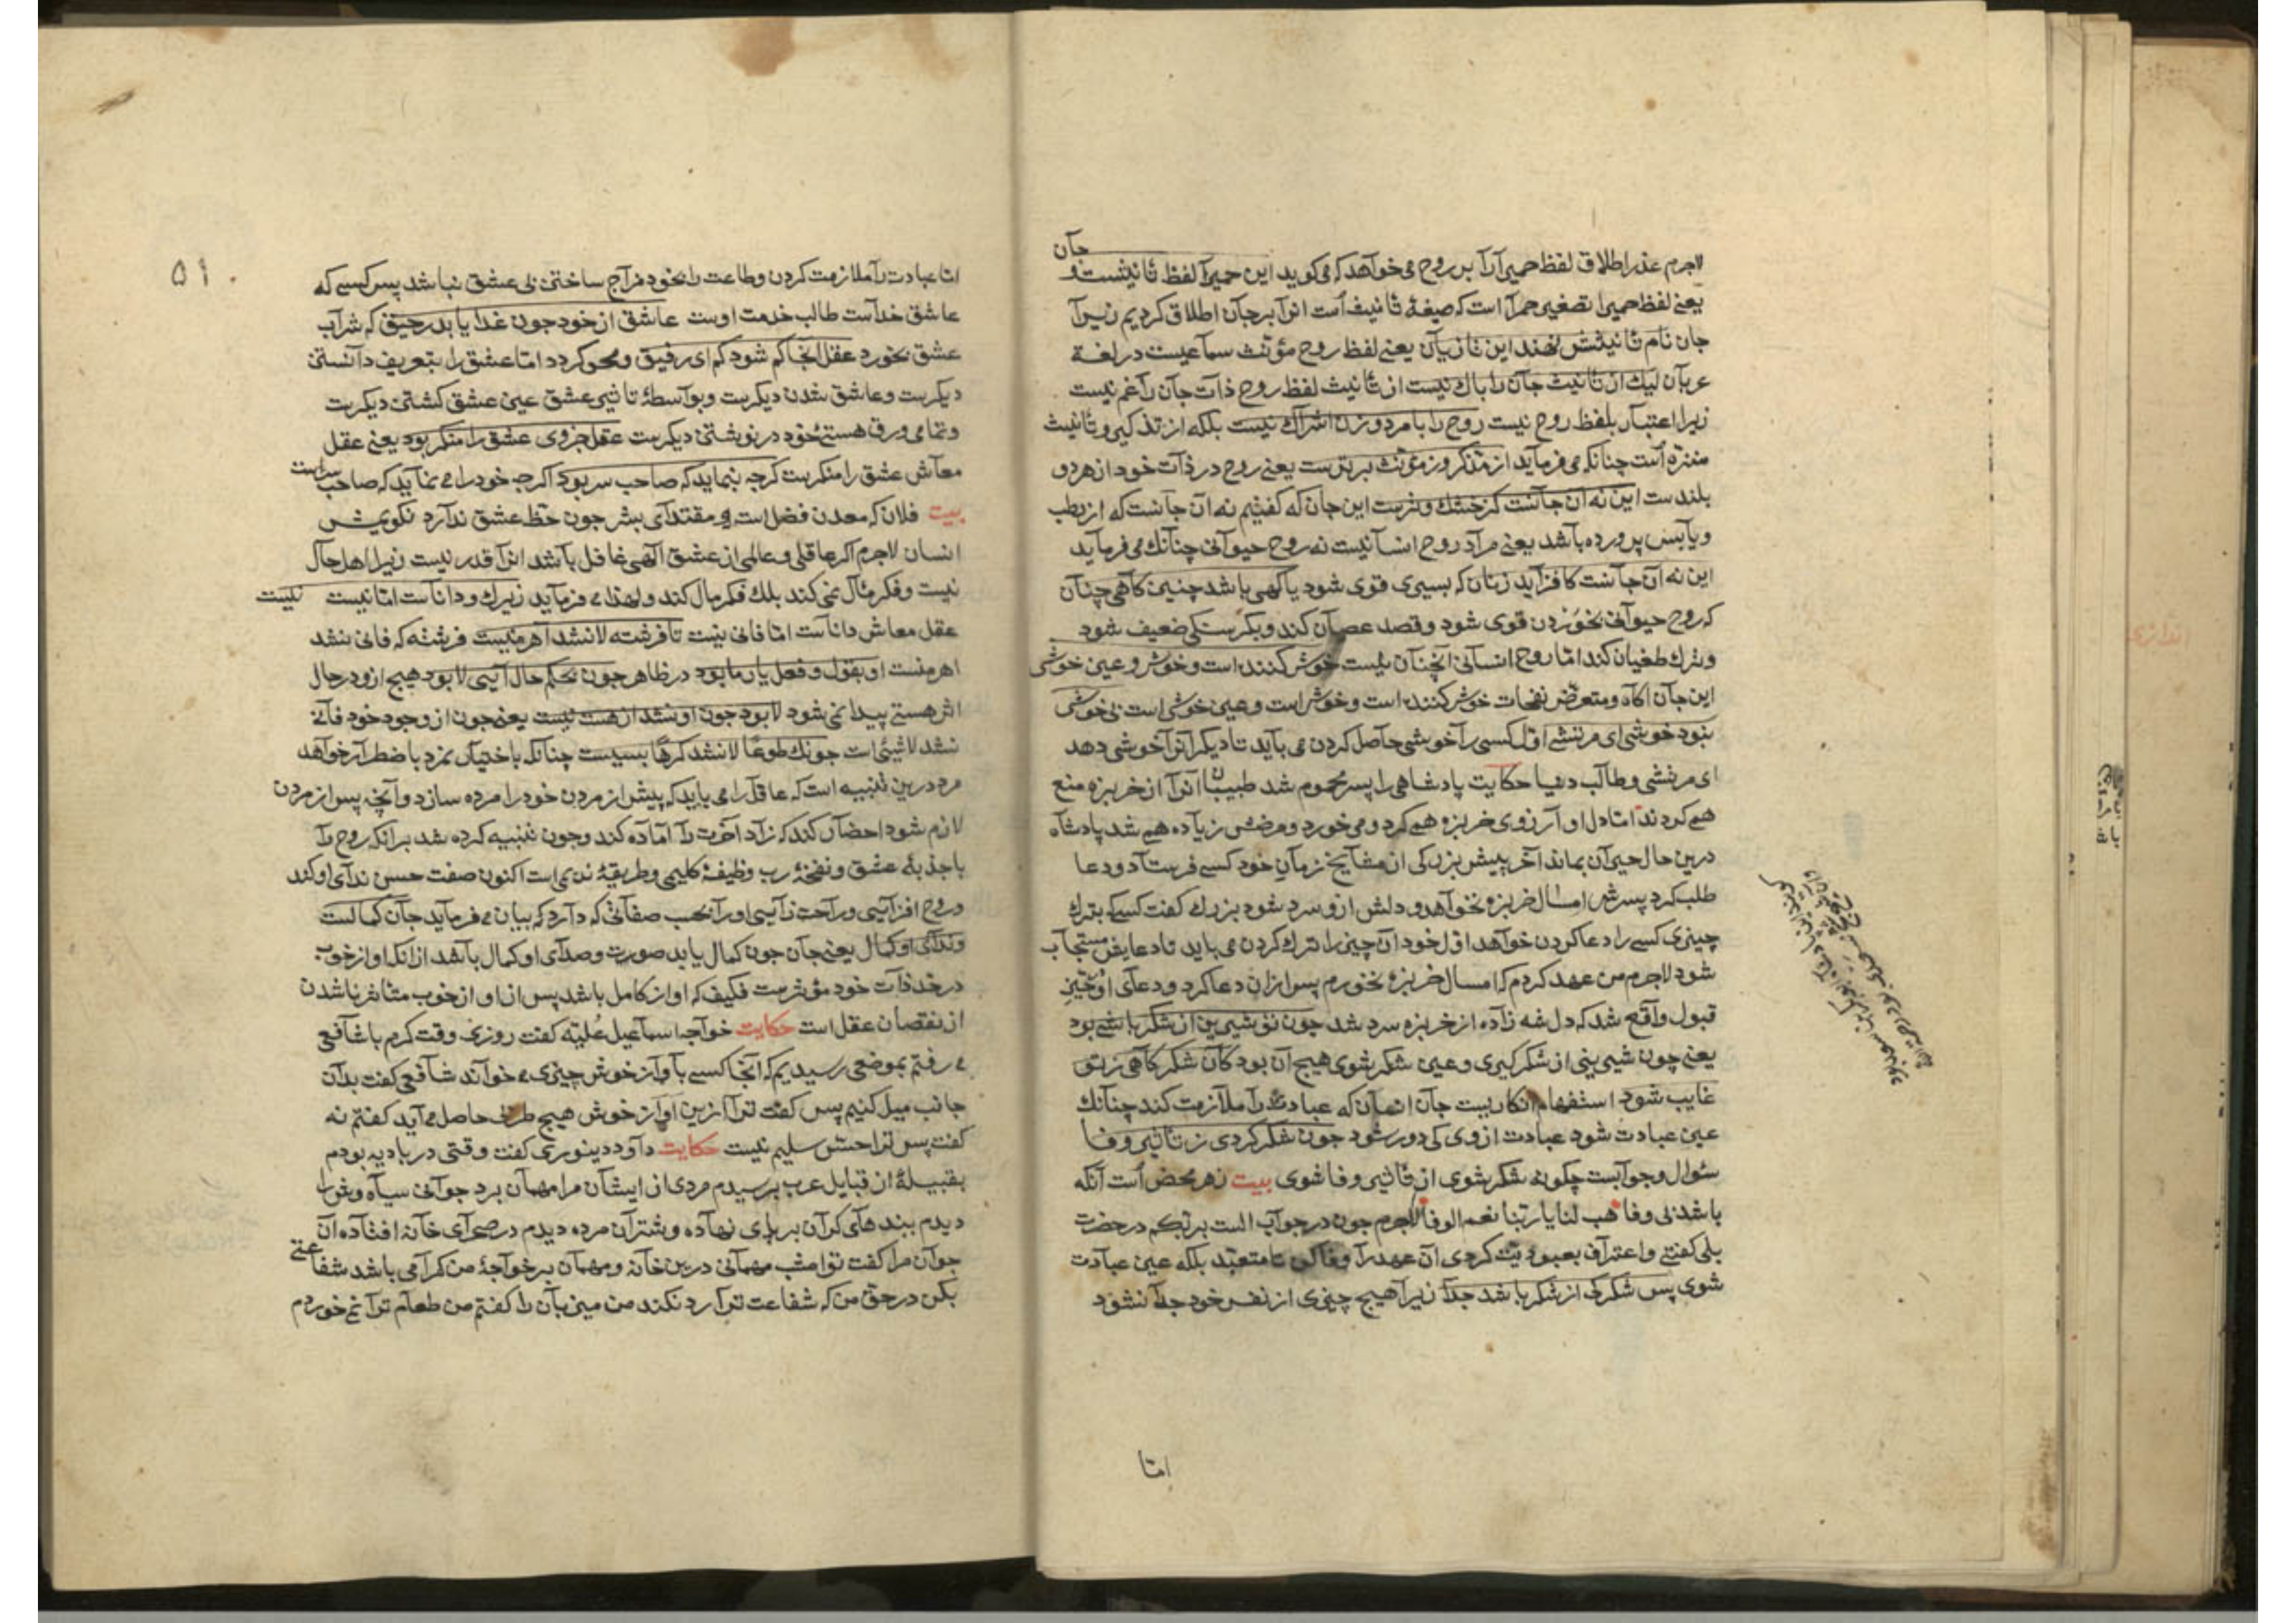 جان
لاجرم عذر اطلاق لفظ حمیرا را بر روح می خواهد که می کوید این حمیرا لفظ تانیثست و
یعنی لفظ حمیرا تصغیر حمرا است که صیغهٔ تانیث است انرا بر جان اطلاق کردیم زیرا
جان نام تانیثش نهند این تازیان یعنی لفظ روح مؤنث سماعیست در لغة
عربان لیك از تانیث جان را باك نیست از تانیث لفظ روح ذات جان را غم نیست
زیرا اعتبار بلفظ روح نیست روح را با مرد و زن اشراك نیست بلکه از تذکیر و تانیث
منزه است چنانکه می فرماید از مذکر وز مؤنث برترست یعنی روح در ذات خود از هر دو
بلندست این نه ان جانست کز خشك و ترست این جان که کفتیم نه ان جانست که از رطب
و یابس پرورده باشد یعنی مراد روح انسانیست نه روح حیوانی چنانك می فرماید
این نه ان جانست کافزاید ز نان که بسیری قوی شود یا کهی باشد چنین کاهی چنان
که روح حیوانی بخوردن قوی شود و قصد عصیان کند و بکرسنکی ضعیف شود
و ترك طغیان کند اما روح انسانی انچنان نیست خوش کننده است و خوش و عین خوشی
این جان اکاه و متعرض نفحات خوش کننده است و خوش است و عین خوشی است بی خوشی
نبود خوشی ای مرتشی اول کسی را خوشی حاصل کردن می باید تا دیکرانرا خوشی دهد
ای مرتشی و طالب دنیا حکایت پادشاهی را پسر محموم شد طبیبان انرا از خربزه منع
همی کردند اما دل او آرزوی خربزه همی کرد و می خورد و مرضش زیاده همی شد پادشاه
درین حال حیران بماند آخر پیش بزرکی از مشایخ زمان خود کسی فرستاد و دعا
طلب کرد پسرش امسال خربزه نخواهد و دلش ازو سرد شود بزرك کفت کسی که بترك
چیزی کسی را دعا کردن خواهد اول خود ان چیز را ترك کردن می باید تا دعایش مستجاب
شود لاجرم من عهد کردم که امسال خربزه نخورم پس ازان دعا کرد و دعای او بحیز
قبول واقع شد که دل غه زاده از خربزه سرد شد چون تو شیرین از شکر باشی بود
یعنی چون شیرینی از شکر کیری و عین شکر شوی هیچ ان بود کان شکر کاهی ز تو
غایب شود استفهام انکاریست جان انسان که عبادت را ملازمت کند چنانك
عین عبادت شود عبادت از وی کی دور شود چون شکر کردی ز تاثیر وفا
سئوال و جوابست چکونه شکر شوی از تاثیر وفا شوی بیت زهر محض است آنکه
باشد بی وفا هب لنا یا ربنا نعم الوفا لاجرم چون در جواب الست بربکم در حضرت
بلی کفتی و اعتراف بعبودیت کردی ان عهد را وفا کن تا متعبد بلکه عین عبادت
شوی پس شکر کی از شکر باشد جدا زیرا هیچ چیزی از نفس خود جدا نشود
اما
۵۱
اما عبادت را ملازمت کردن و طاعت را بخود مزاج ساختن بی عشق نباشد پس کسی که
عاشق خداست طالب خدمت اوست عاشق از خود چون غذا یابد رحیق که شراب
عشق بخورد عقل انجا کم شود کم ای رفیق و محو کردد اما عشق را بتعریف دانستن
دیکرست و عاشق شدن دیکرست و بواسطهٔ تاثیر عشق عین عشق کشتن دیکرست
و تمامی ورق هستئ خود در نوشتن دیکرست عقل جزوی عشق را منکر بود یعنی عقل
معاش عشق را منکرست کرچه بنماید که صاحب سر بود اکرچه خود را می نماید که صاحب سراست
بیت فلان که معدن فضل است و مقتدای بشر چون حظ عشق ندارد نکویمش
انسان لاجرم اکر عاقلی و عالمی از عشق الهی غافل باشد انرا قدر نیست زیرا اهل حال
نیست و فکر مآل نمی کند بلك فکر مال کند و لهذا می فرماید زیرك و داناست اما نیست نیست
عقل معاش داناست اما فانی نیست تا فرشته لا نشد آهرمنیست فرشته که فانی نشد
اهرمنست او بقول و فعل یار ما بود در ظاهر چون بحکم حال آیی لا بود هیچ ازو در حال
اثر هستی پیدا نمی شود لا بود چون او نشد از هست نیست یعنی چون از وجود خود فانی
نشد لا شیئ است چونك طوعًا لا نشد کرهًا بسیست چنانکه باختیار نمرد باضطرار خواهد
مرد درین تنبیه است که عاقل را می باید که پیش از مردن خود را مرده سازد و آنچه پس از مردن
لازم شود احضار کند که زاد اخرت را اماده کند و چون تنبیه کرده شد برانکه روح را
با جذبهٔ عشق و نفخهٔ رب وظیفهٔ کلیمی و طریقهٔ ندیمی است اکنون صفت حسن ندای او کند
و روح افزایی و راحت زایی او را بحسب صفاتی که دارد که بیان می فرماید جان کمالست
و ندای او کمال یعنی جان چون کمال یابد صورت و صدای او کمال باشد ازانکه اواز خوب
در حد ذات خود مؤثرست فکیف که اواز کامل باشد پس از او از خوب متاثر ناشدن
از نقصان عقل است حکایت خواجه اسماعیل علیه کفت روزی وقت کرم با شافعی
می رفتم بموضعی رسیدیم که انجا کسی باواز خوش چیزی می خواند شافعی کفت بدان
جانب میل کنیم پس کفت ترا ازین اواز خوش هیچ طرب حاصل می آید کفتم نه
کفت پس ترا حس سلیم نیست حکایت داود دینوری کفت وقتی در بادیه بودم
بقبیلهٔ از قبایل عرب برسیدم مردی از ایشان مرا مهمان برد جوانی سیاه وش را
دیدم بندهای کران بر پای نهاده و شتران مرده دیدم در صحرای خانه افتاده ان
جوان مرا کفت تو امشب مهمانی درین خانه و مهمان بر خواجهٔ من کرامی باشد شفاعتی
بکن در حق من که شفاعت ترا رد نکند من میزبان را کفتم من طعام ترا نمی خوردم